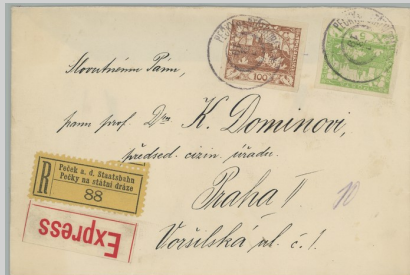 Slovutnému Pánu,
pann prof. Dru K. Dominovi,
předsed. cizin. úřadu.
Praha II
10
Vorsilská ul. č. 1.
R
Peček a. d. Staatsbahn
Pečky na státní dráze
88
Express
100